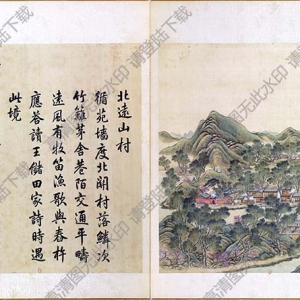 北遠山村
循苑墻度北關村落鱗次
竹籬茅舍巷陌交通平疇
遠風有牧笛漁歌與舂杵
應答讀王儲田家詩時遇
此境
高清图无此水印 请登陆下载